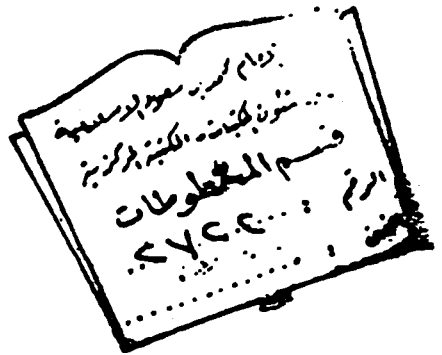 الإمام محمد بن سعود الاسلامية
شئون المكتبات - المكتبة المركزية
قسم المخطوطات
الرقم : ٢٧٢٢